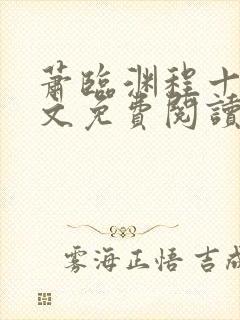 蕭臨渊程十
文免費閱讀
雾海正悟 吉成